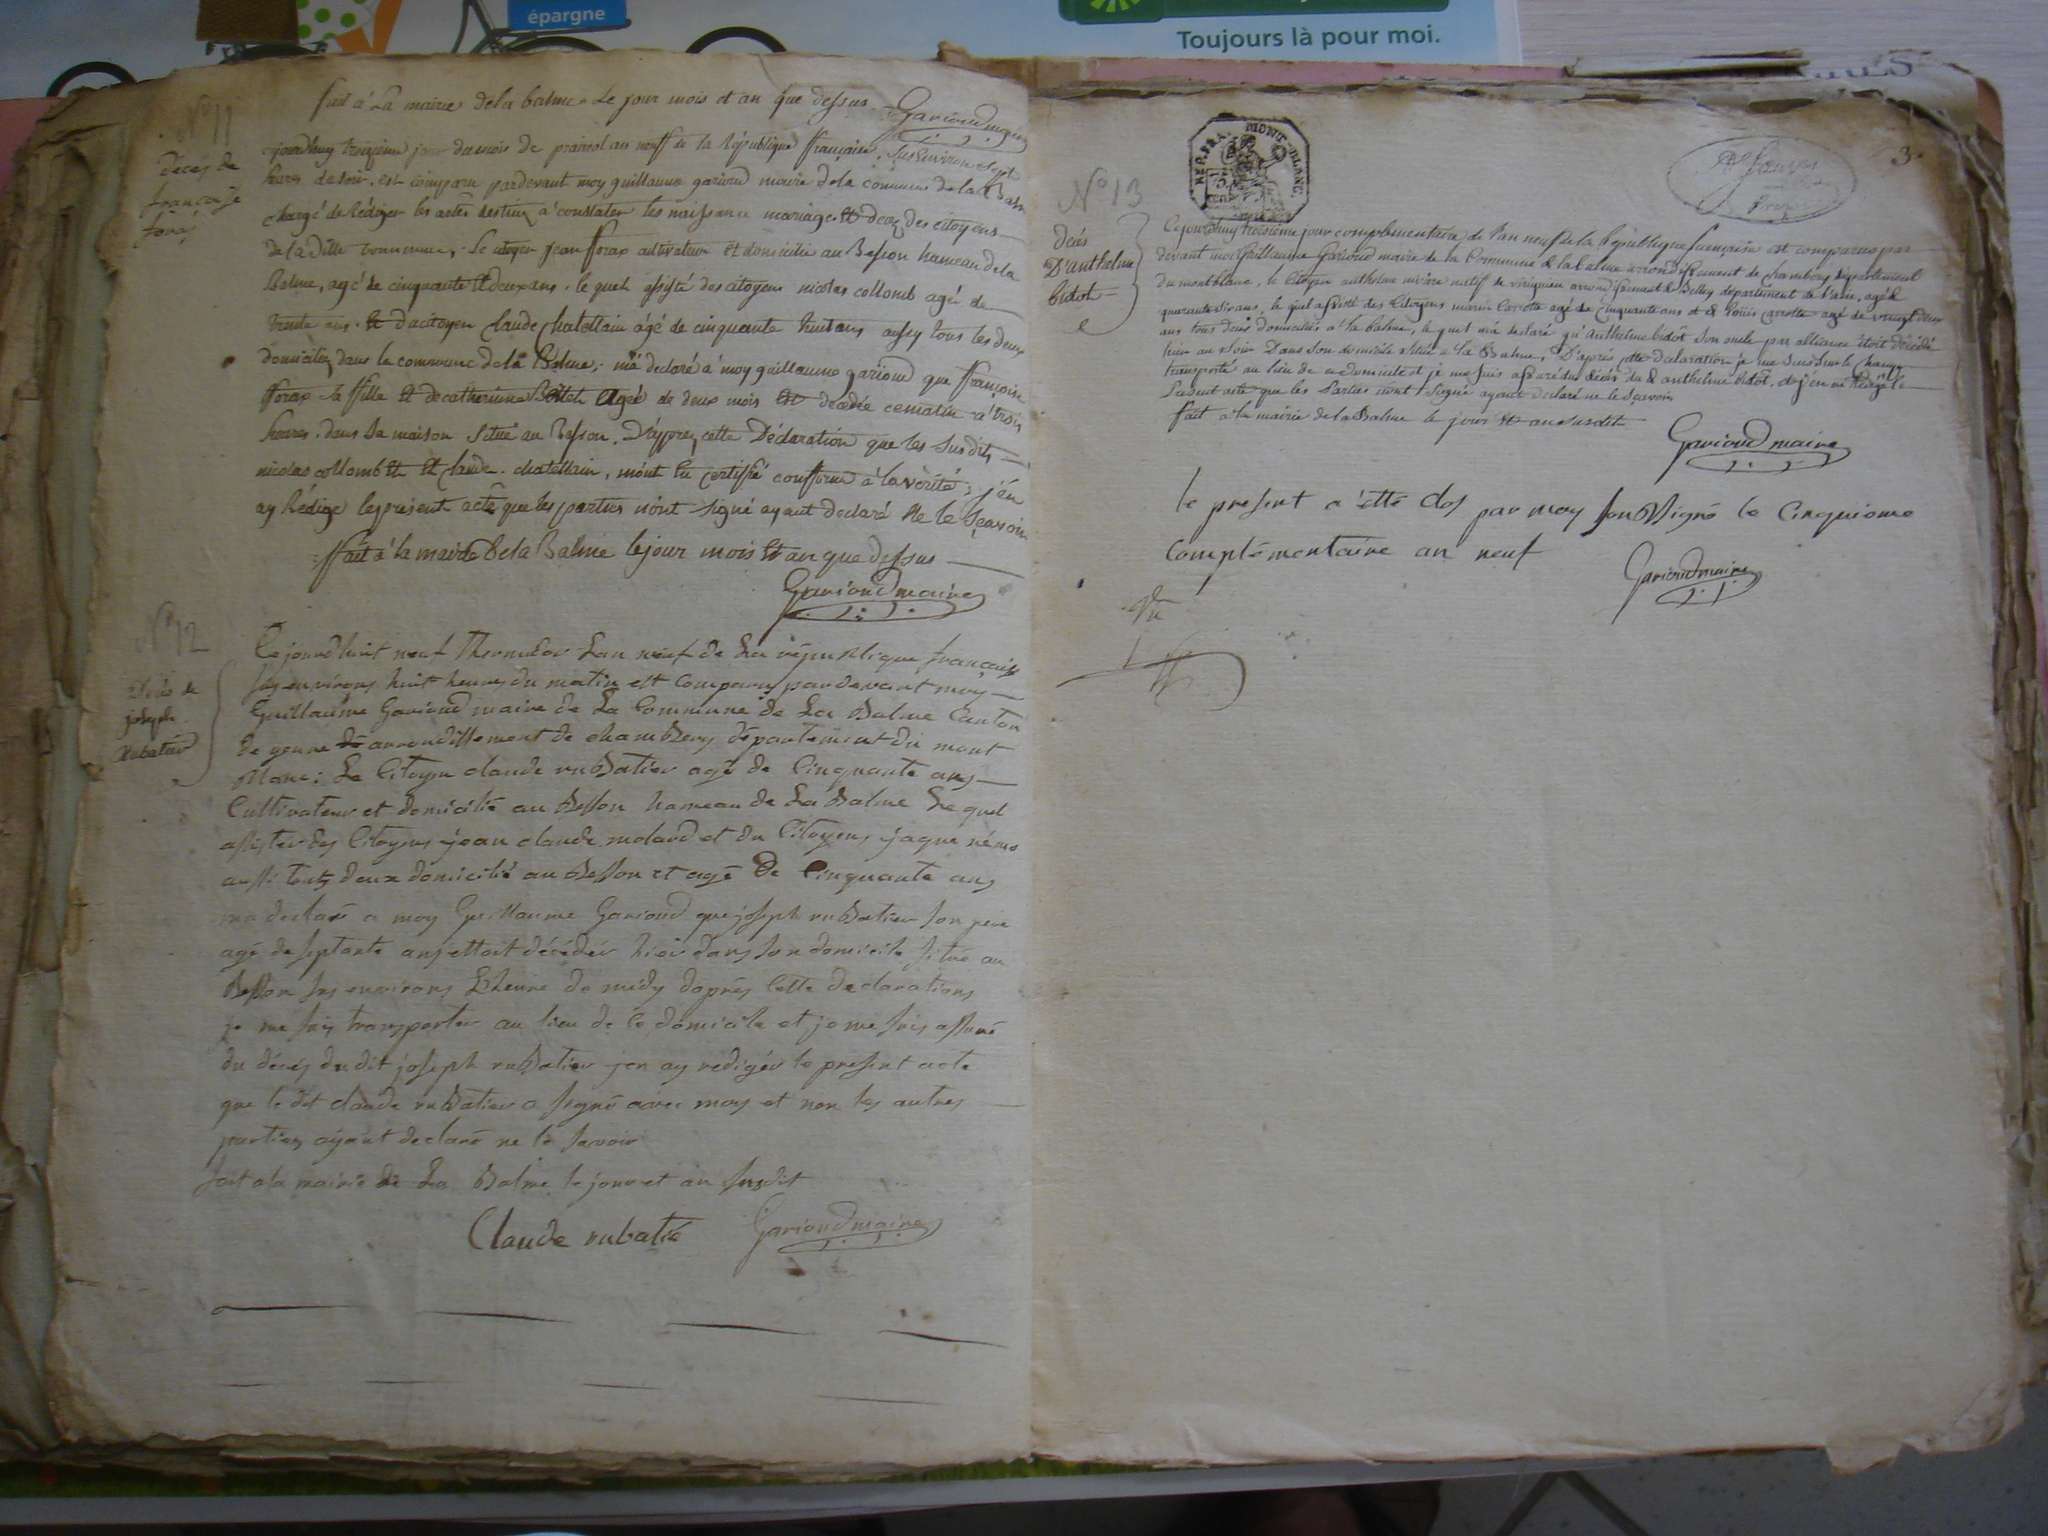 épargne
Toujours là pour moi.
fait à La mairie de la balme Le jour mois et an que dessus
Garioud maire
N° 11
Décès de
françoise
forax
ajourdhuy treizieme jour du mois de prairial an neuf de la République française, sus environ sept
heures de soir, est comparu pardevant moy guillaume garioud maire de la commune de la Balme
chargé de Rédiger les actes destinés a constater les naissance mariages et decez des citoyens
de la ditte commune, Le citoyen jean fforax cultivateur et domicilie au Besson hameau de la
Balme, agé de cinquante et deux ans, le quel assisté des citoyens nicolas collomb agé de
trente ans et du citoyen Claude Chatellain âgé de cinquante huit ans aussy tous les deux
domiciliez dans la commune de la Balme; m'a declaré à moy guillaume garioud que françoise
fforax la ffille et de catherinne agé de deux mois est decedée ce matin à trois
heures, dans sa maison situé au Besson, D'apprez cette Déclaration que les susdits
nicolas collomb et Claude chatellain, m'ont certiffié conforme à la vérité; j'en
ay Rédigé le présent acte que les parties n'ont signé ayant declaré Ne le sçavoir
ffait à la mairie de la Balme le jour mois et an que dessus
Garioud maire
N° 12
Décès de
joseph
Rubatier
Ce jourdhuit neuf Thermidor Lan neuf de La république française
sus environs huit heures du matin est comparus pardevant moy
Guillaume Garioud maire de La Commune de La Balme Canton
de yenne arrondissement de chambery département du mont
Blanc; Le Citoyen claude rubatier agé de Cinquante ans
Cultivateur et domicilié au Besson hameau de La Balme Lequel
assister des Citoyens jean claude molard et du Citoyens jaque
aussi touts deux domicilié au Besson et agé De Cinquante ans
ma declaré a moy Guillaume Garioud que joseph rubatier son pere
agé de septante ans ettoit décéder hier dans son domicile situé au
Besson sus environs Lheure de midy daprés Cette declarations
je me suis transporter au lieu de ce domicile et je me suis assuré
du décés du dit joseph rubatier jen ay rédigér le present acte
que le dit claude rubatier a signé avec moy et non les autres
parties ayant declaré ne le savoir
fait a la mairie de La Balme le jour et an susdit
Claude rubatié
Garioud maire
REP. FRA. MONT-BLANC.
3.
N° 13
Décès
D'anthelme
bidot
Cejourdhuy troisieme jour complémentaire de l'an neuf de la République française est comparus par
devant moi Guillaume Garioud maire de la Commune de la Balme arrondissement de chambery département
du montblanc, le Citoyen anthelme natif de virignieu arrondissement de Belley département de l'ain, agé de
quarante dix ans, le quel assisté des Citoyens marin Carotte agé de Cinquante ans et de Louis carotte agé de vingt deux
ans tous deux domiciliés a la balme, le quel m'a declaré qu'Anthelme bidot son oncle par alliance étoit décédé
hier au soir Dans son domicile situé a la Balme, D'après cette déclaration je me suis sur le champ
transporté au lieu de ce domicile et je me suis assuré du décés du d anthelme bidot, et j'en ai rédigé le
présent acte que les Parties n'ont signé ayant declaré ne le sçavoir
fait a la mairie de la Balme le jour et an susdit
Garioud maire
le present a étté clos par moy soussigné le Cinquieme
Complémentaire an neuf
Garioud maire
Vu